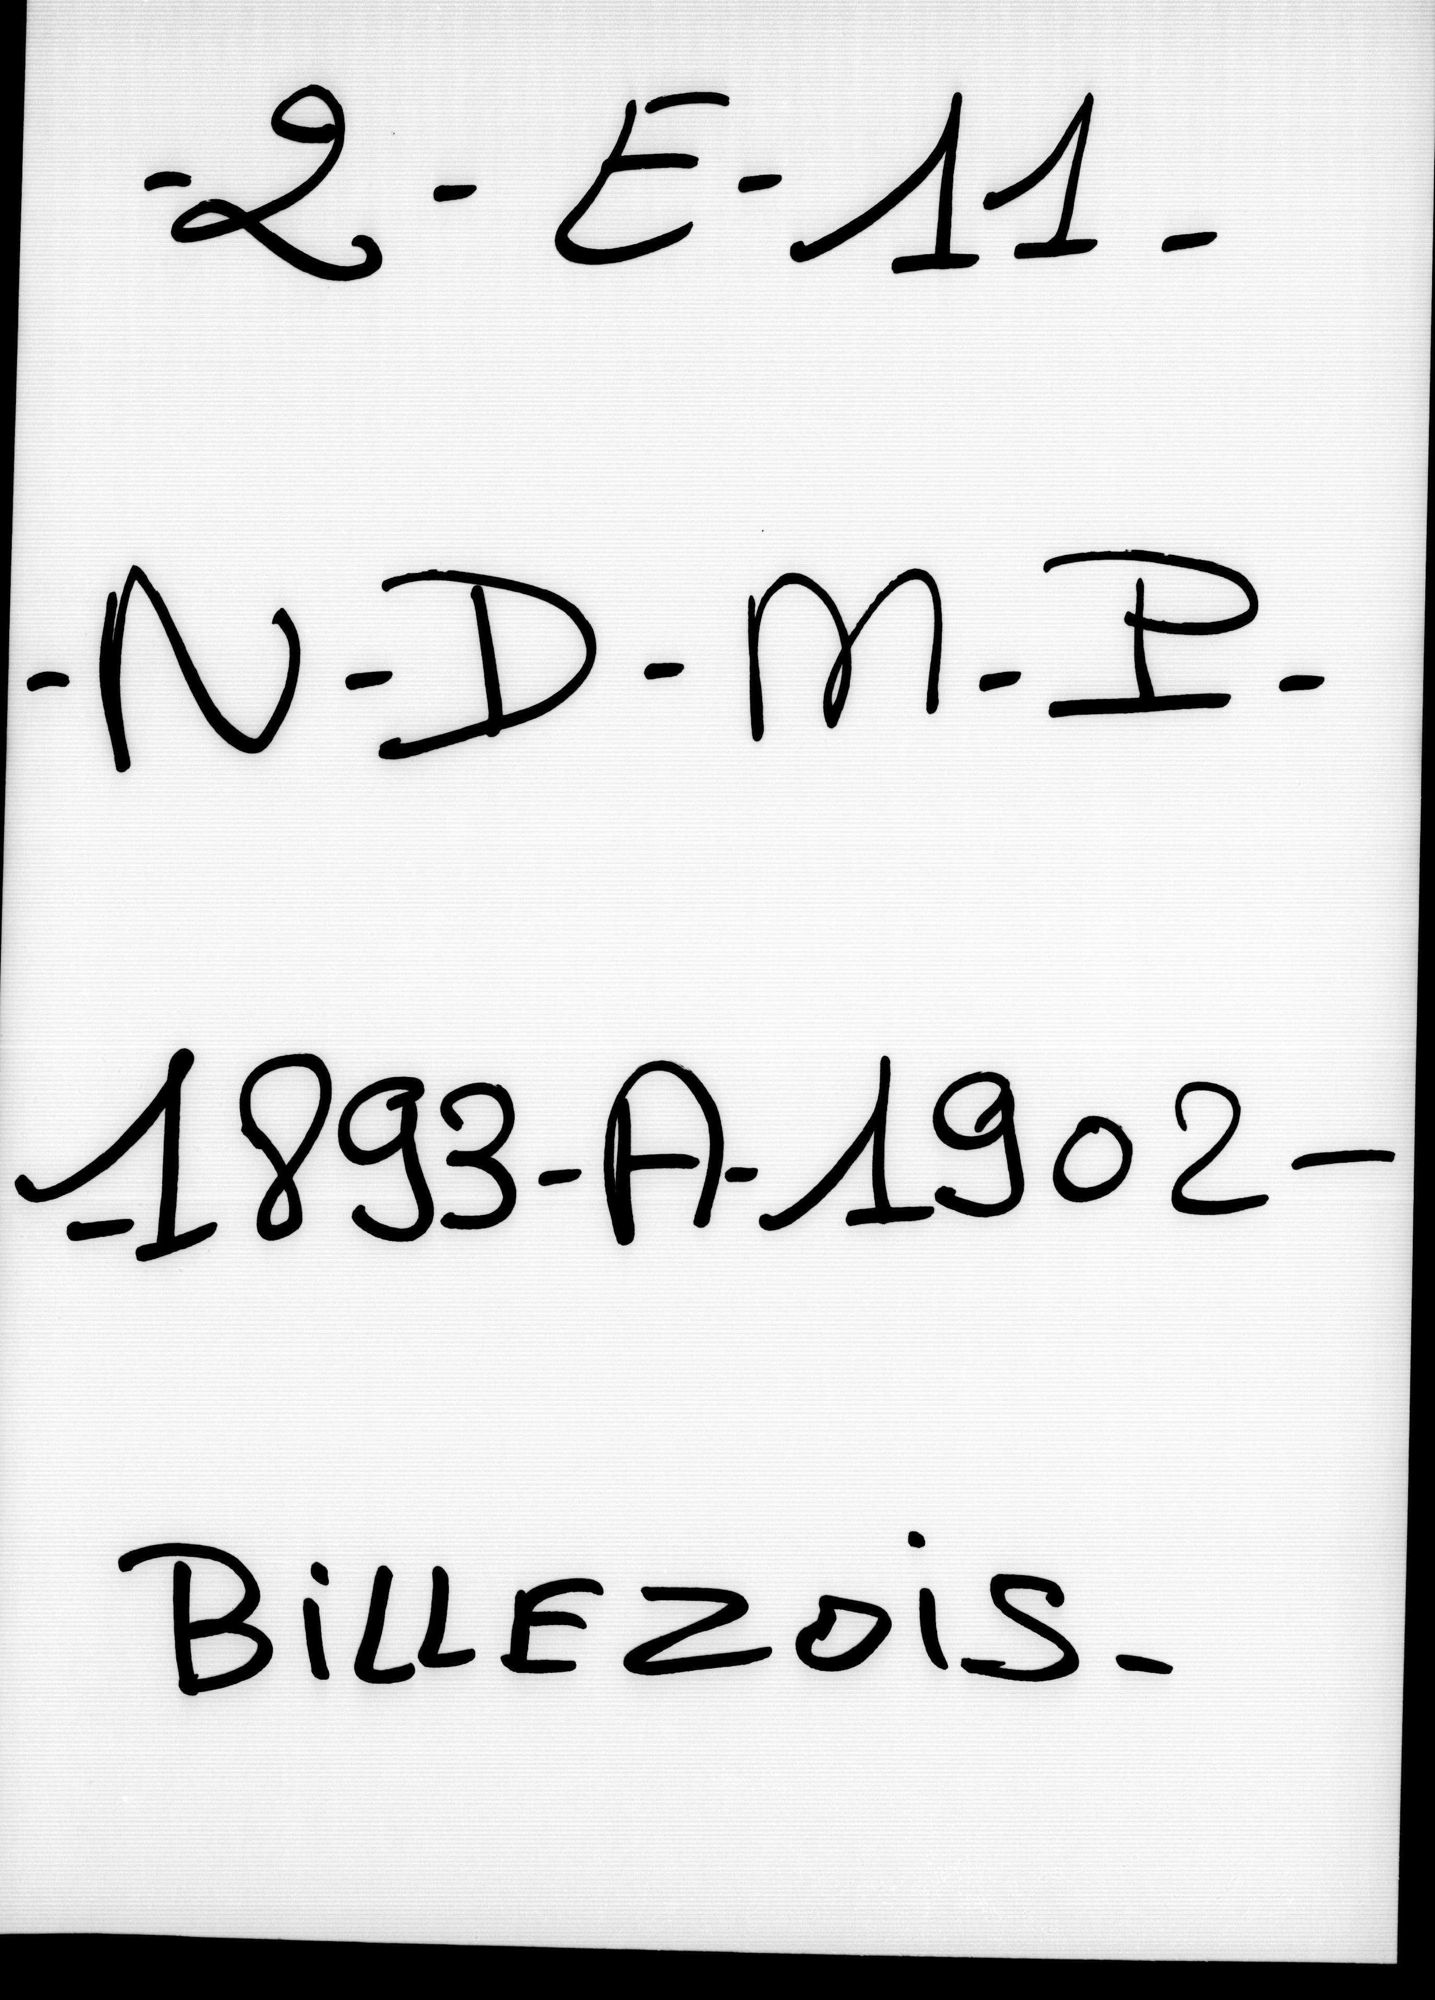 -2-E-11-
-N-D-M-P-
-1893-A-1902-
BiLLEZOiS-